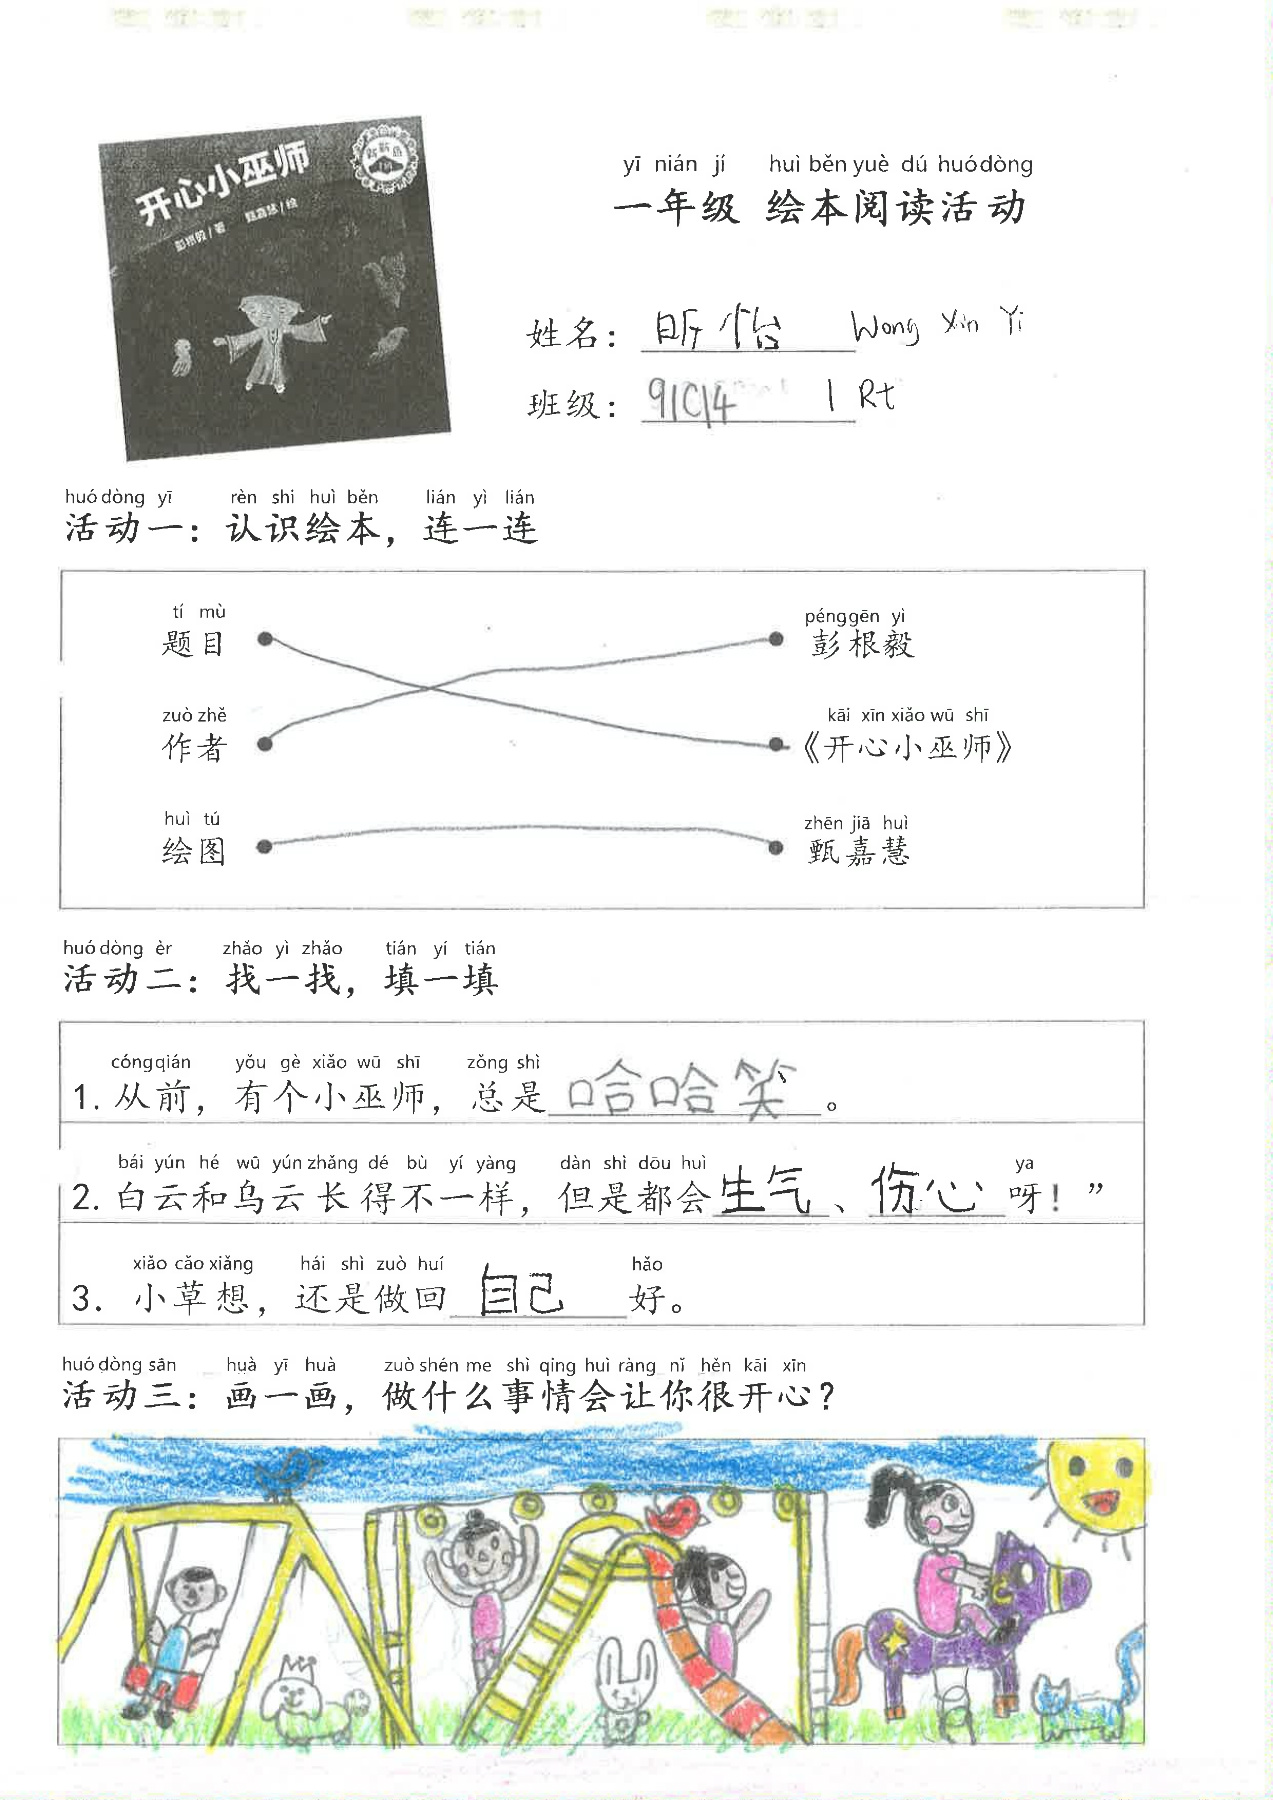 开心小巫师
彭根毅/著 甄嘉慧/绘
yī nián jí huì běn yuè dú huó dòng
一年级 绘本阅读活动
姓名: 昕怡 Wong Xin Yi
班级: 1 Rt
huó dòng yī rèn shi huì běn lián yì lián
活动一: 认识绘本, 连一连
tí mù pénggēn yì
题目 彭根毅
zuò zhě kāi xīn xiǎo wū shī
作者 《开心小巫师》
huì tú zhēn jiā huì
绘图 甄嘉慧
huó dòng èr zhǎo yì zhǎo tián yí tián
活动二: 找一找, 填一填
cóngqián yǒu gè xiǎo wū shī zǒng shì
1. 从前, 有个小巫师, 总是哈哈笑。
bái yún hé wū yún zhǎng dé bù yí yàng dàn shì dōu huì ya
2. 白云和乌云长得不一样, 但是都会生气、伤心呀! ”
xiǎo cǎo xiǎng hái shì zuò huí hǎo
3. 小草想, 还是做回自己好。
huó dòng sān huà yī huà zuò shén me shì qing huì ràng nǐ hěn kāi xīn
活动三: 画一画, 做什么事情会让你很开心?